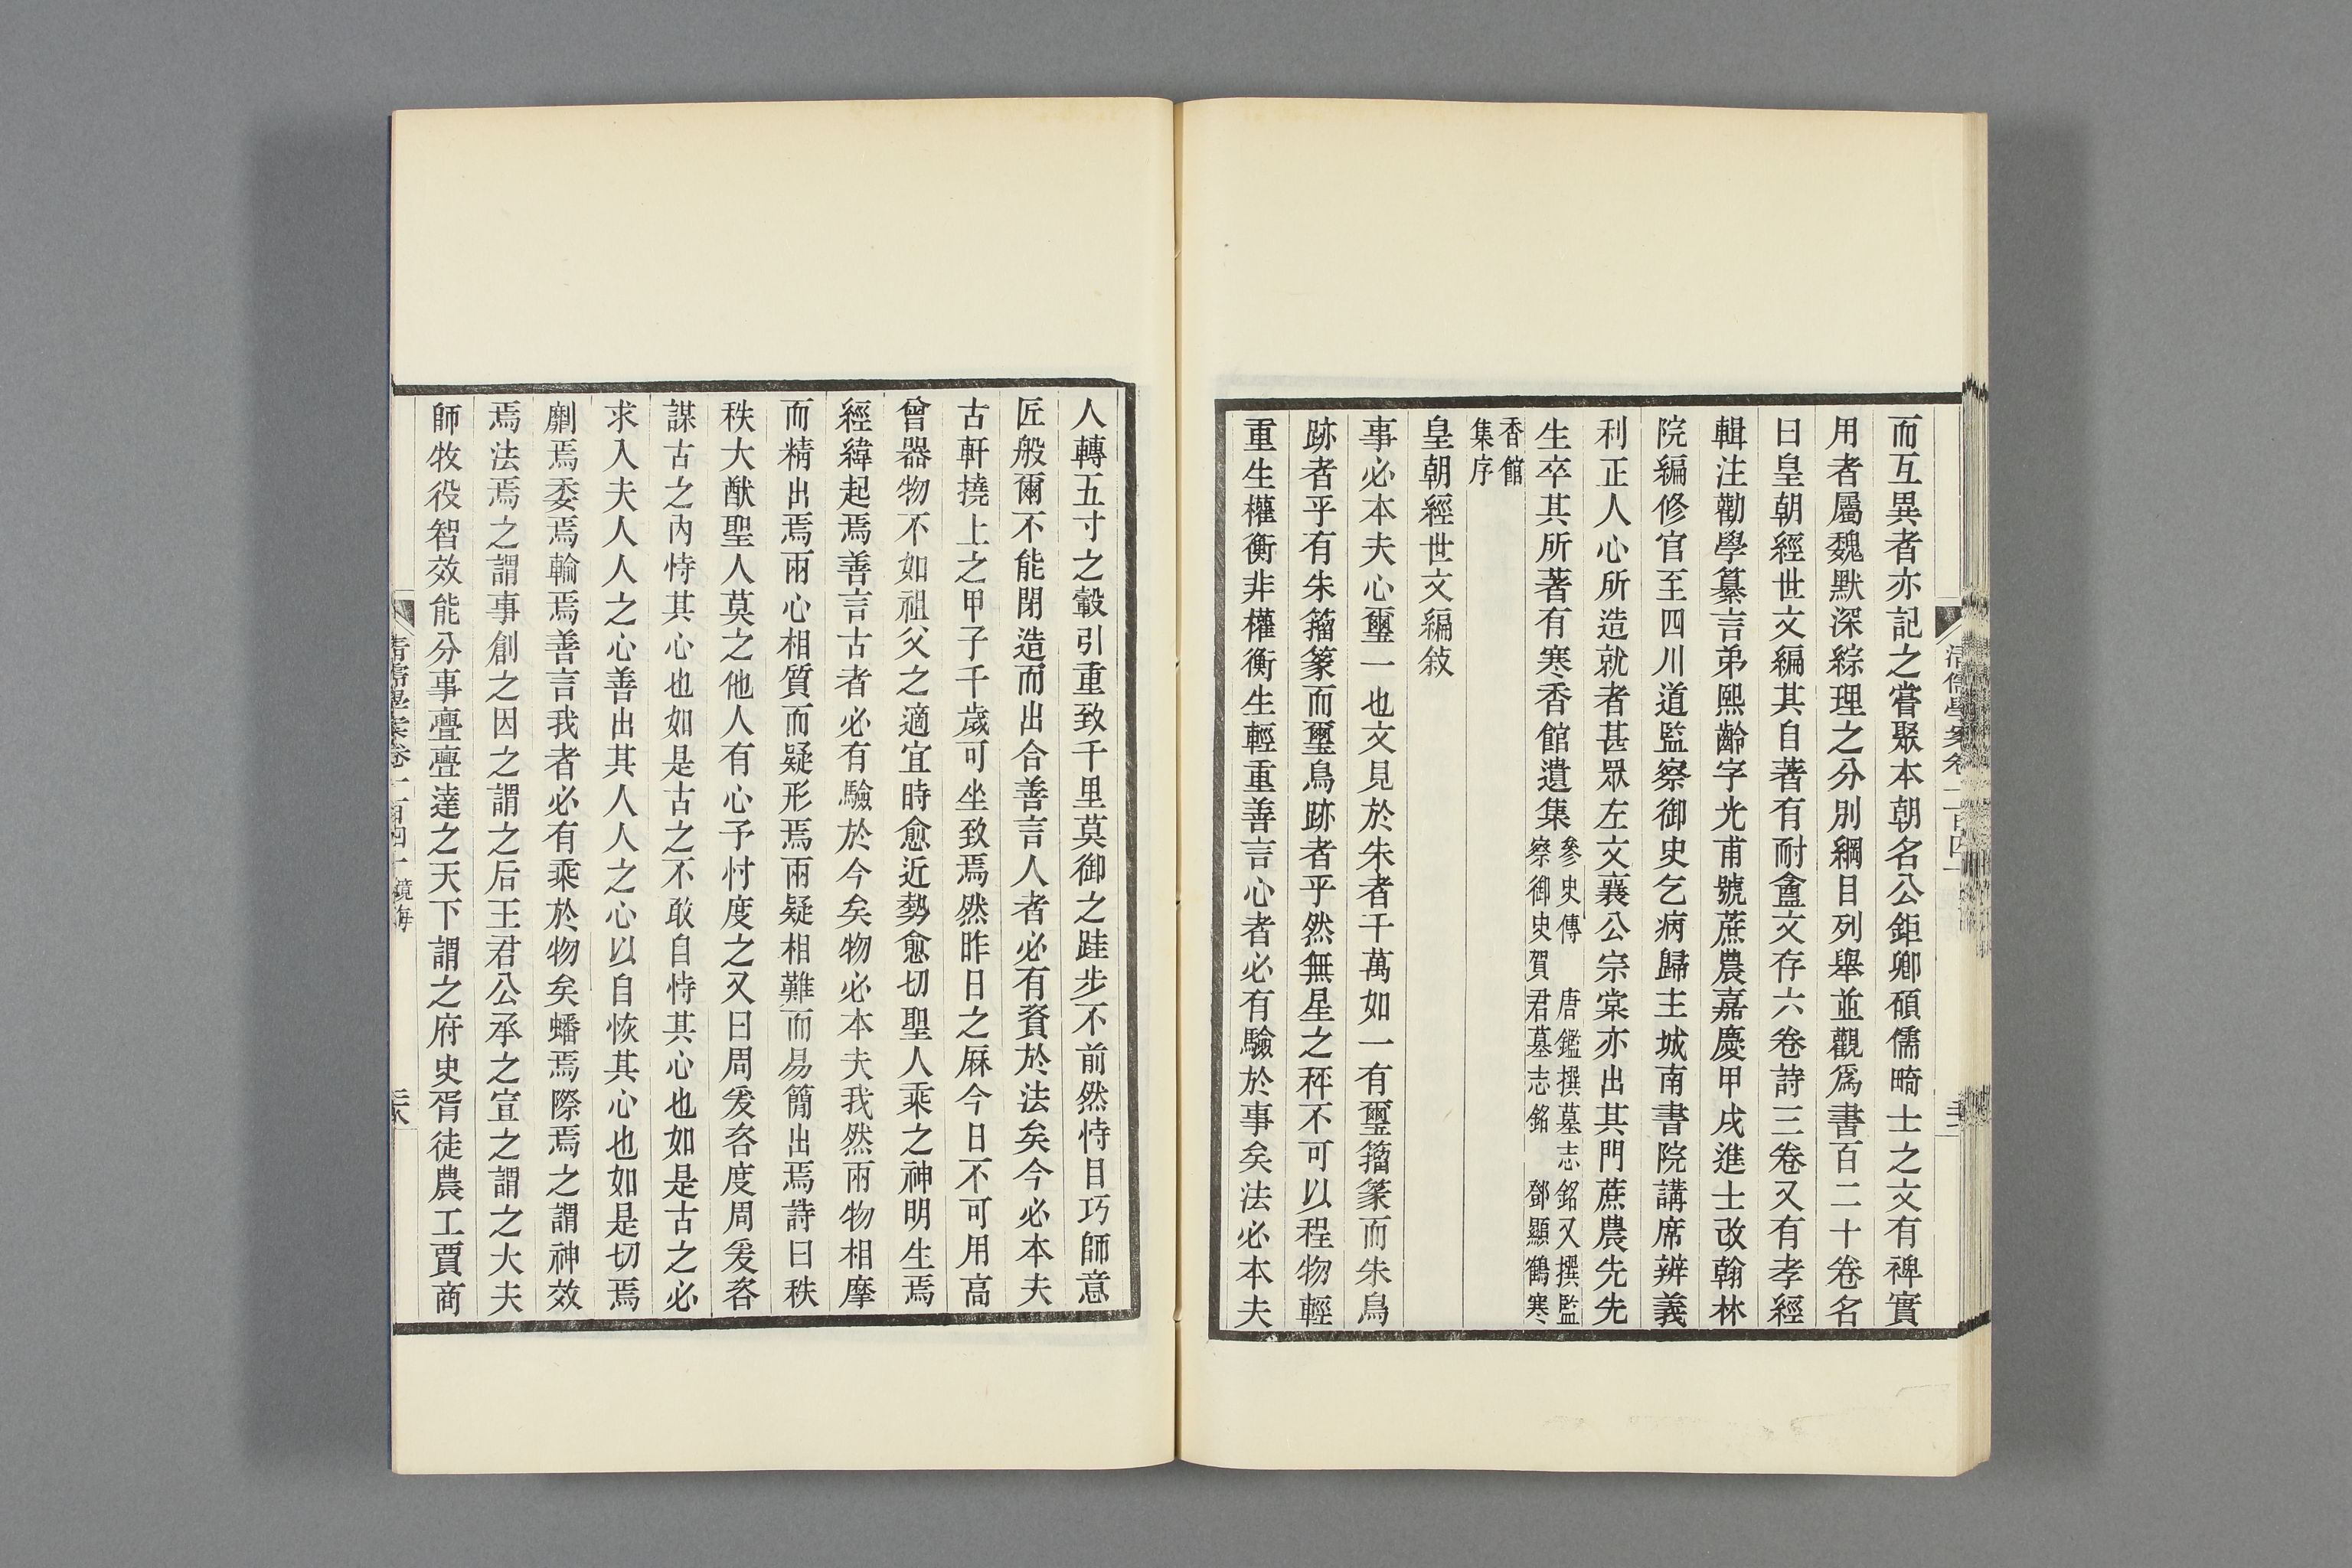 而互異者亦記之嘗聚本朝名公鉅卿碩儒畸士之文有裨實
用者屬魏默深綜理之分別綱目列舉並觀爲書百二十卷名
曰皇朝經世文編其自著有耐盦文存六卷詩三卷又有孝經
輯注勸學纂言弟熙齡字光甫號蔗農嘉慶甲戌進士改翰林
院編修官至四川道監察御史乞病歸主城南書院講席辨義
利正人心所造就者甚眾左文襄公宗棠亦出其門蔗農先先
生卒其所著有寒香館遺集參史傳 唐鑑撰墓志銘又撰監
察御史賀君墓志銘 鄧顯鶴寒
香館
集序
皇朝經世文編敍
事必本夫心璽一也文見於朱者千萬如一有璽籀篆而朱鳥
跡者乎有朱籀篆而璽鳥跡者乎然無星之秤不可以程物輕
重生權衡非權衡生輕重善言心者必有驗於事矣法必本夫
人轉五寸之轂引重致千里莫御之跬步不前然恃目巧師意
匠般爾不能閉造而出合善言人者必有資於法矣今必本夫
古軒撓上之甲子千歲可坐致焉然昨日之厤今日不可用高
曾器物不如祖父之適宜時愈近勢愈切聖人乘之神明生焉
經緯起焉善言古者必有驗於今矣物必本夫我然兩物相摩
而精出焉兩心相質而疑形焉兩疑相難而易簡出焉詩曰秩
秩大猷聖人莫之他人有心予忖度之又曰周爰咨度周爰咨
謀古之內恃其心也如是古之不敢自恃其心也如是古之必
求入夫人人之心善出其人人之心以自恢其心也如是切焉
劘焉委焉輸焉善言我者必有乘於物矣蟠焉際焉之謂神效
焉法焉之謂事創之因之謂之后王君公承之宣之謂之大夫
師牧役智效能分事亹亹達之天下謂之府史胥徒農工賈商
清儒學案卷一百四十 鏡海